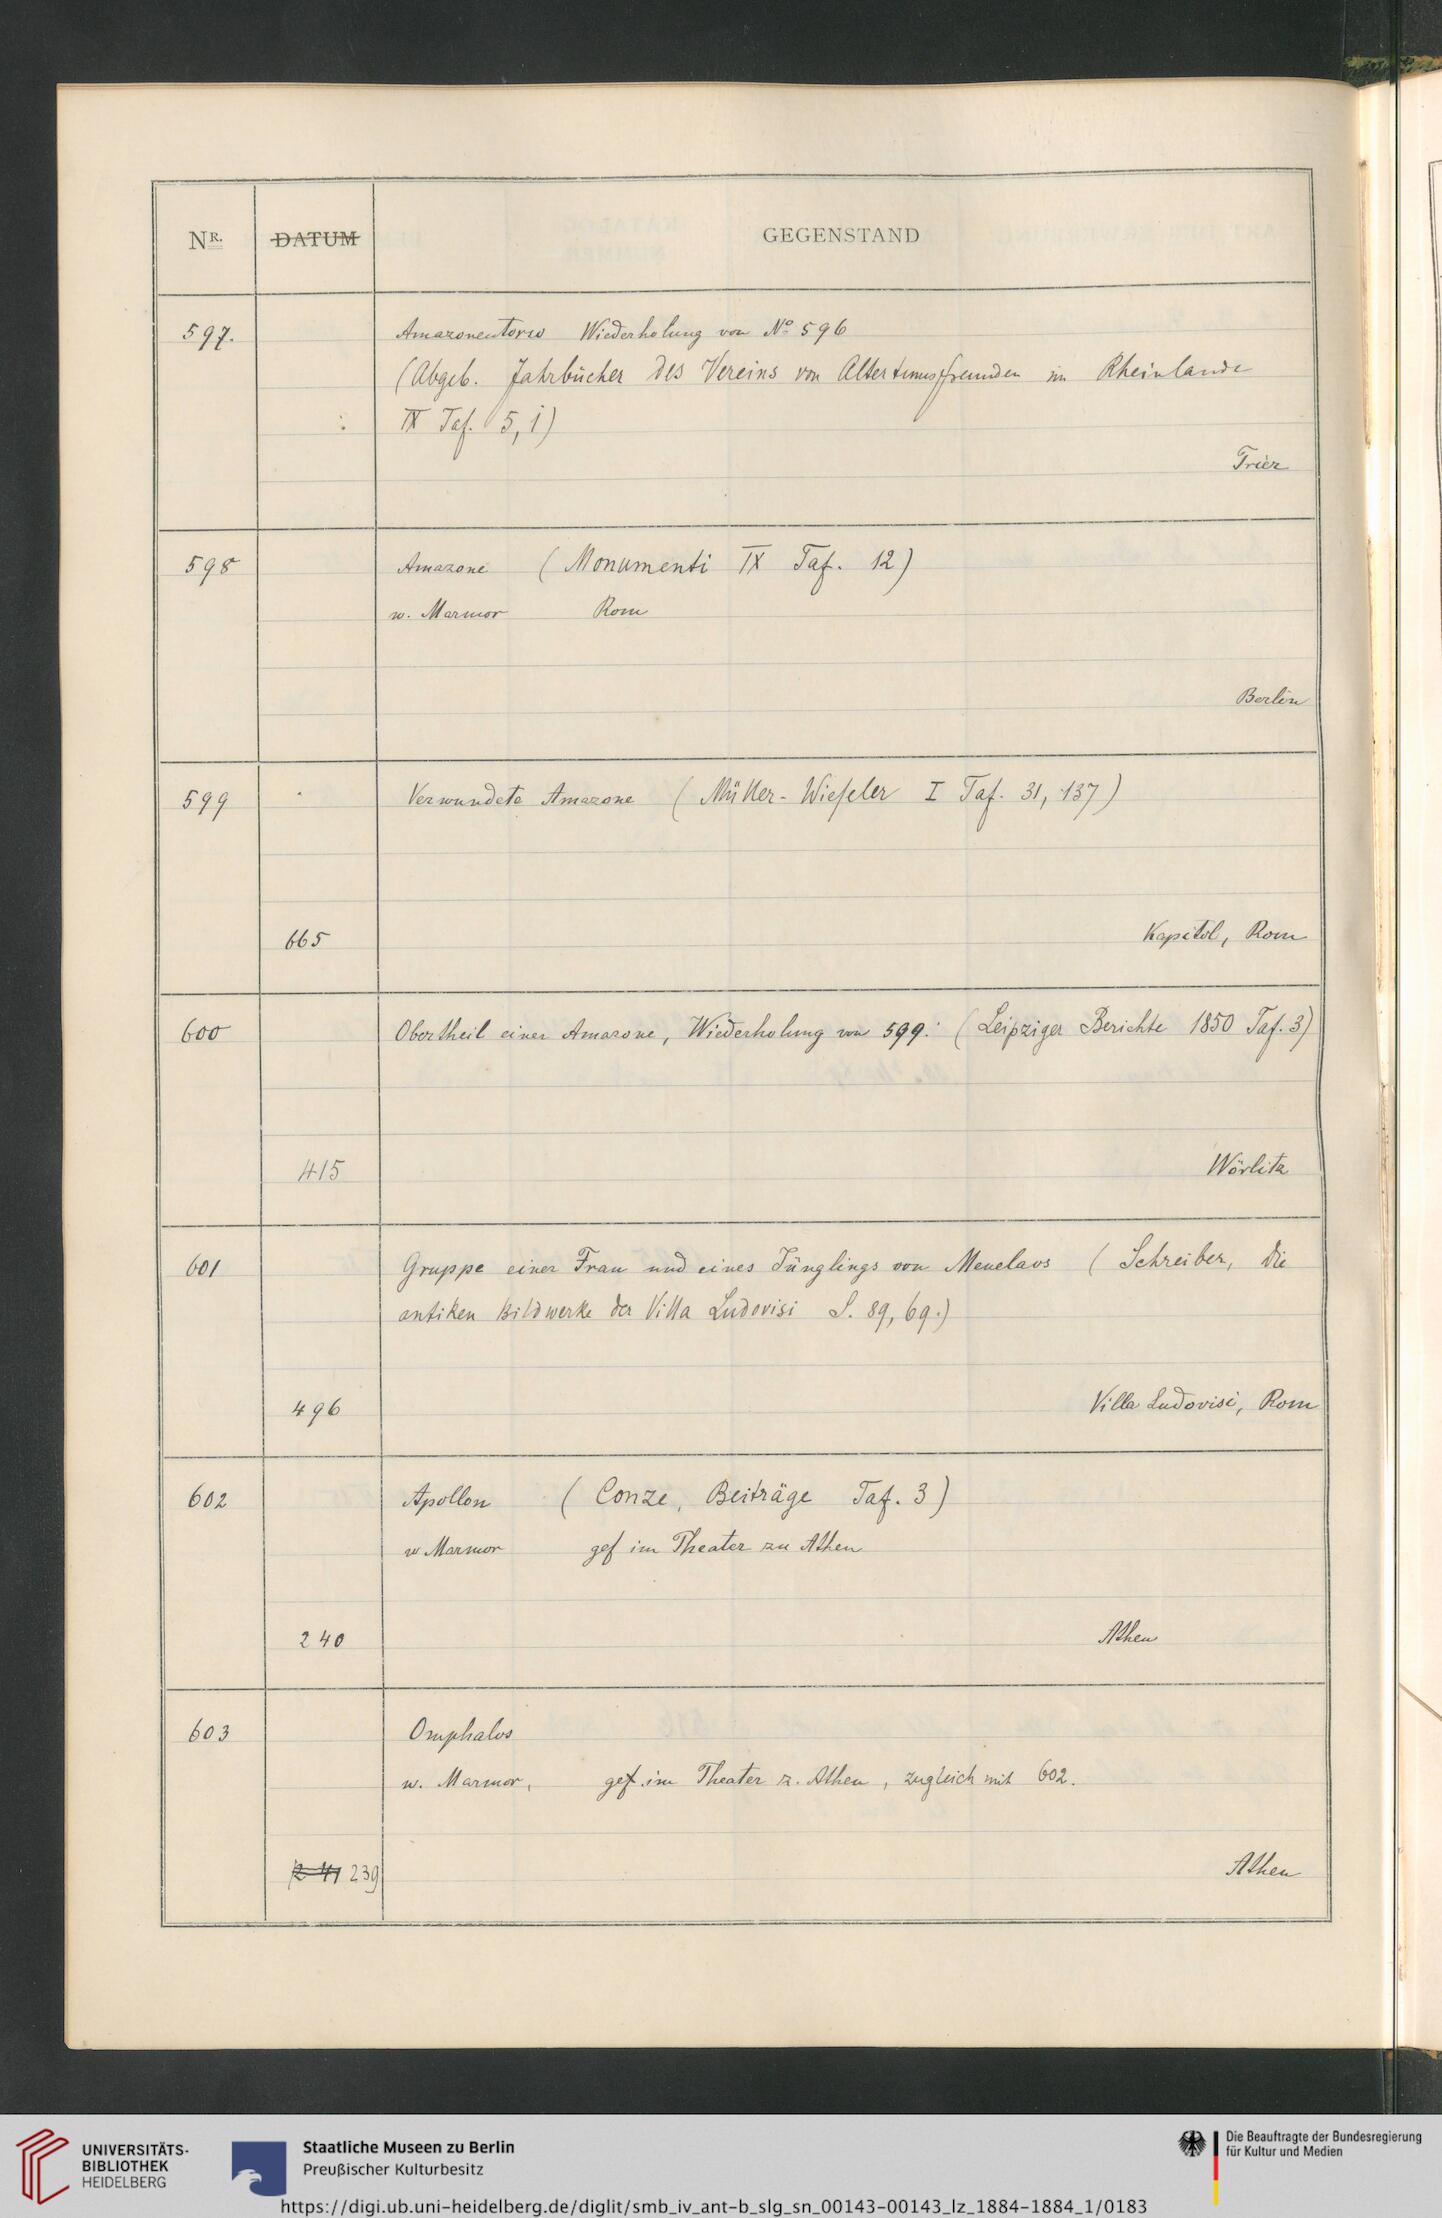 NR. DATUM GEGENSTAND
597. Amazonentorso Wiederholung von No 596
(Abgeb. Jahrbücher des Vereins von Altertumsfreunden im Rheinlande
IX Taf. 5, 1)
Trier
598 Amazone (Monumenti IX Taf. 12)
w. Marmor Rom
Berlin
599 Verwundete Amazone (Müller-Wieseler I Taf. 31, 137)
665 Kapitol, Rom
600 Obertheil einer Amazone, Wiederholung von 599. (Leipziger Berichte 1850 Taf. 3)
415 Wörlitz
601 Gruppe einer Frau und eines Jünglings von Menelaos (Schreiber, Die
antiken Bildwerke der Villa Ludovisi S. 89, 69.)
496 Villa Ludovisi, Rom
602 Apollon (Conze, Beiträge Taf. 3)
w Marmor gef im Theater zu Athen
240 Athen
603 Omphalos
w. Marmor, gef. im Theater z. Athen, zugleich mit 602.
241 239 Athen
UNIVERSITÄTS-
BIBLIOTHEK
HEIDELBERG
Staatliche Museen zu Berlin
Preußischer Kulturbesitz
Die Beauftragte der Bundesregierung
für Kultur und Medien
https://digi.ub.uni-heidelberg.de/diglit/smb_iv_ant-b_slg_sn_00143-00143_lz_1884-1884_1/0183